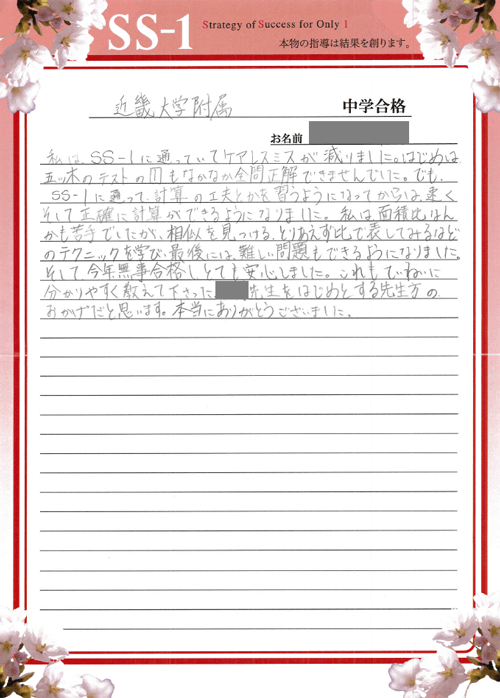 SS-1
Strategy of Success for Only 1
本物の指導は結果を創ります。
近畿大学附属 中学合格
お名前
私は、SS-1に通っていてケアレスミスが減りました。はじめは
五ッ木のテストの 1もなかなか全問正解できませんでした。でも、
SS-1に通って、計算の工夫とかを習うようになってからは、速く
そして正確に計算ができるようになりました。私は面積比なん
かも苦手でしたが、相似を見つける、とりあえず比で表してみるなど
のテクニックを学び、最後には、難しい問題もできるようになりました。
そして今年無事合格しとても安心しました。これもていねいに
分かりやすく教えて下さった 先生をはじめとする先生方の
おかげだと思います。本当にありがとうございました。